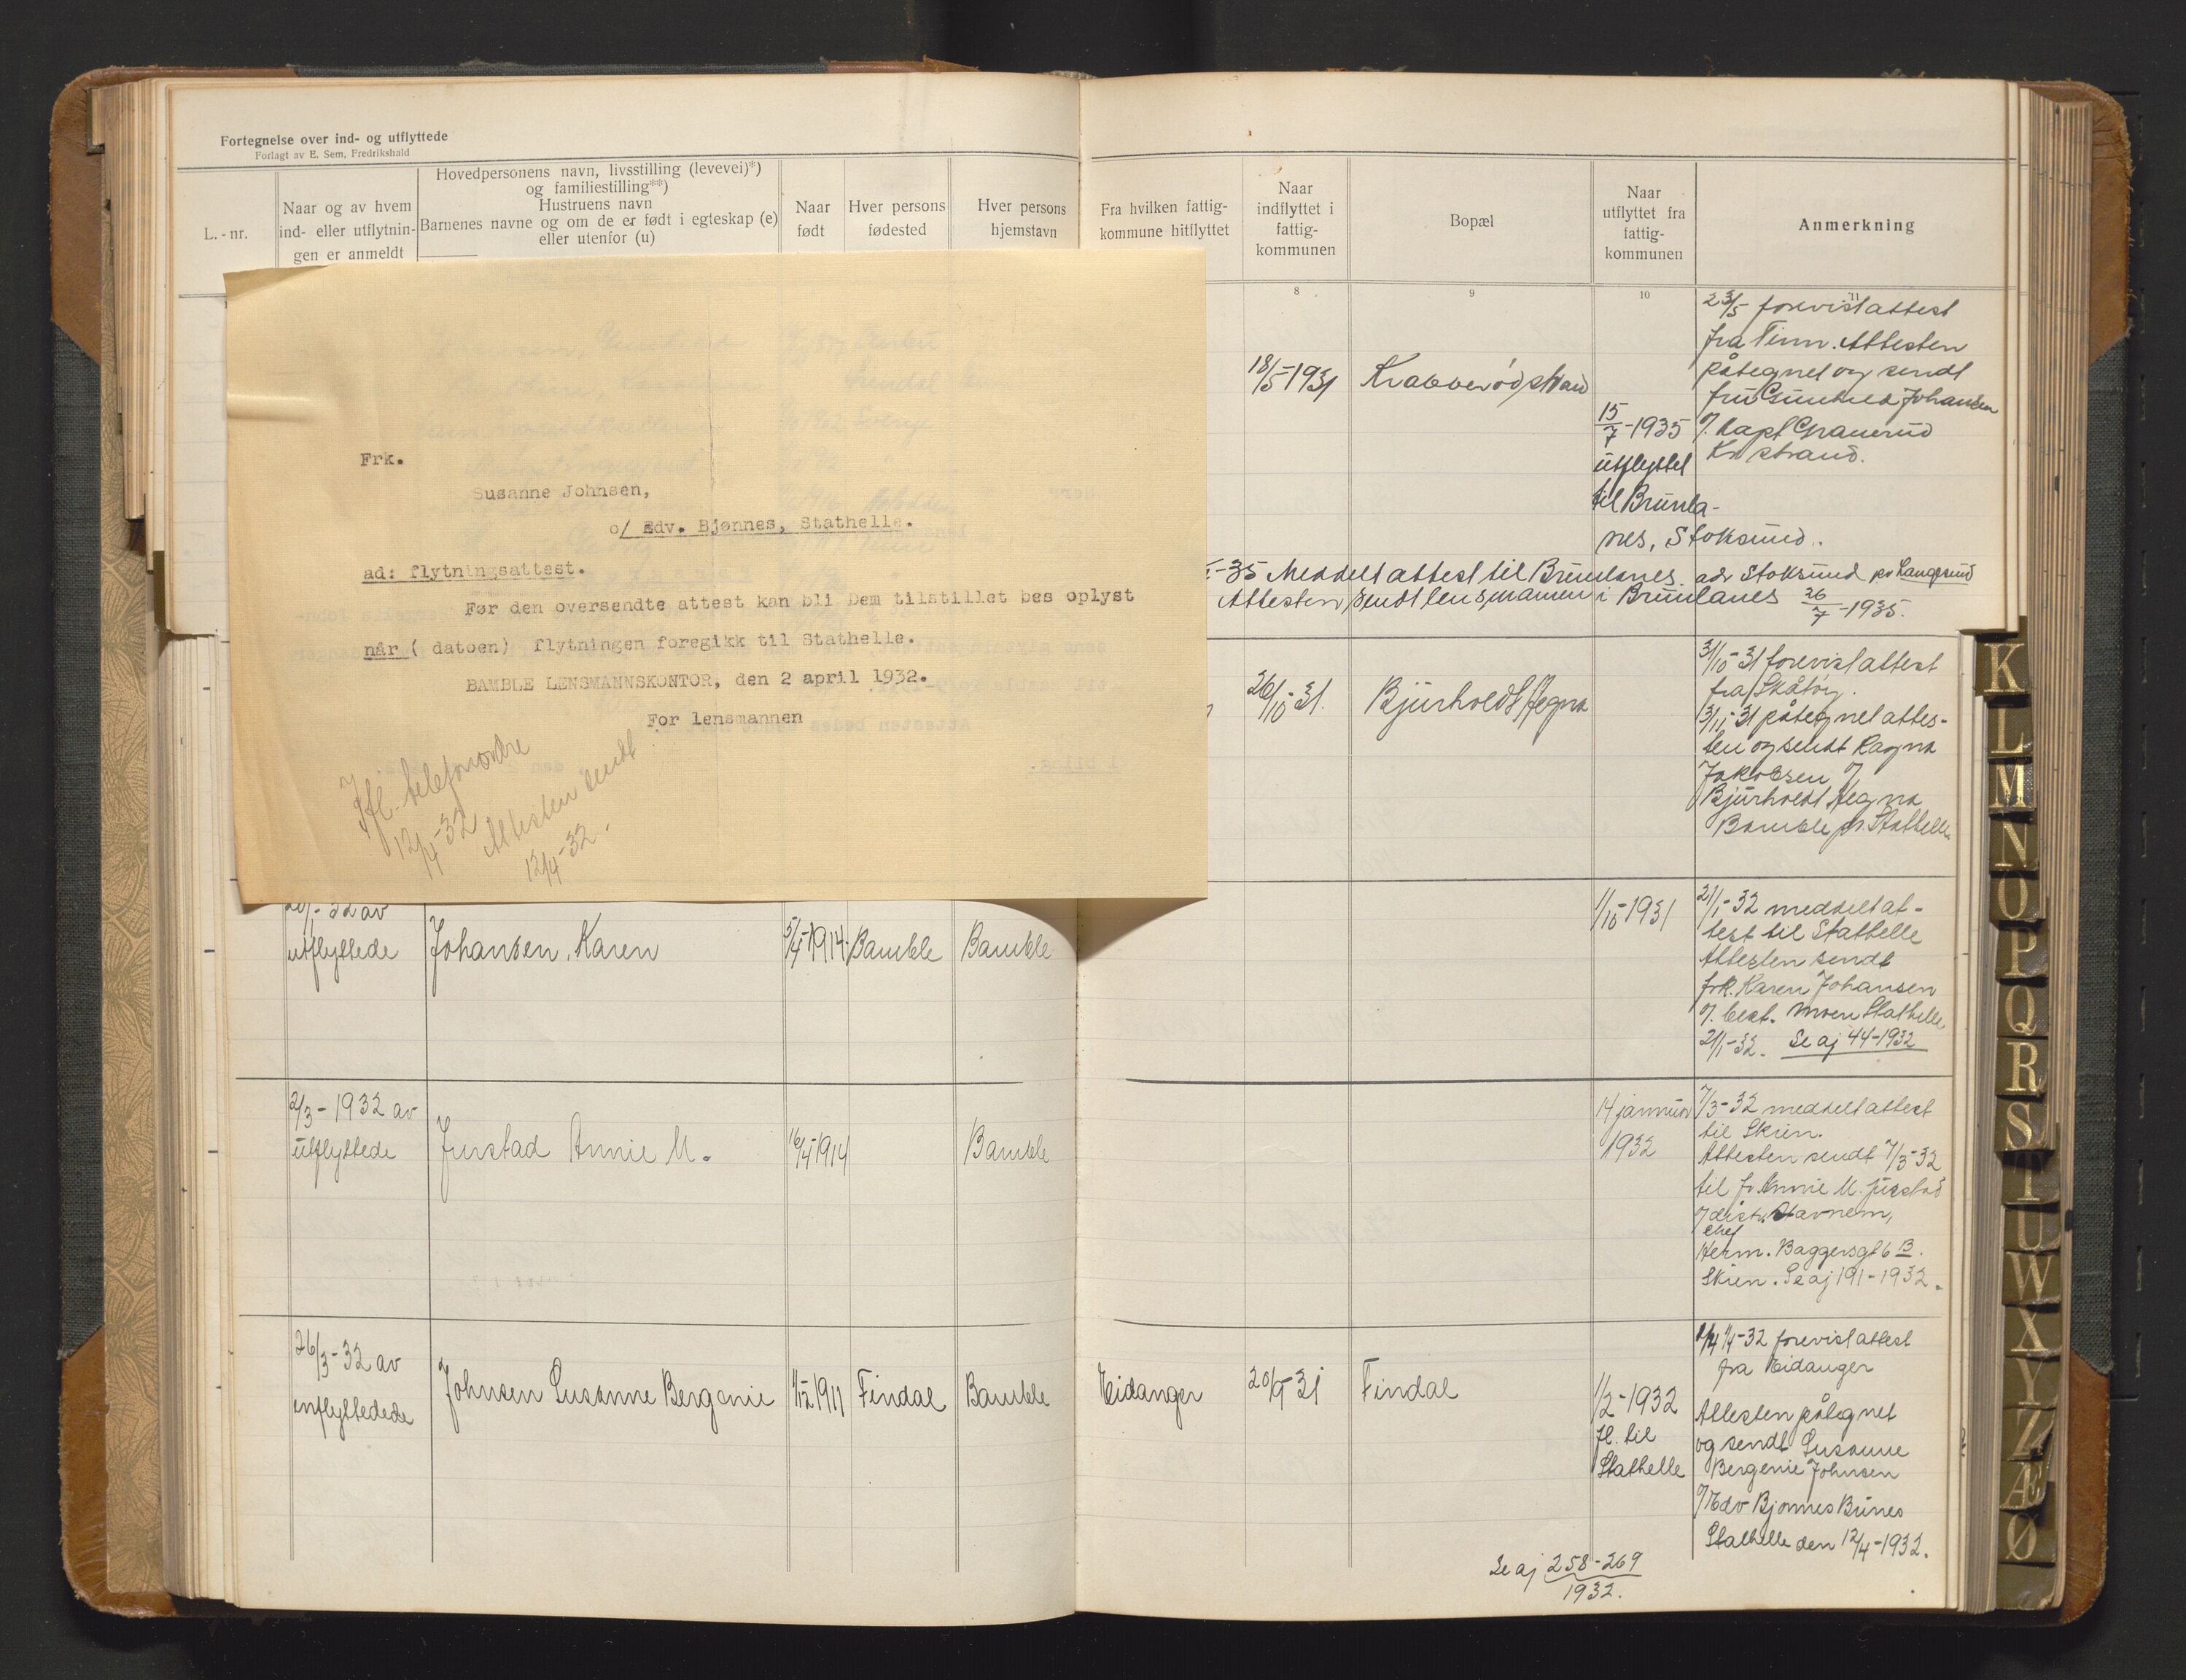 Fortegnelse over ind- og utflyttede
Forlagt av E. Sem, Fredrikshald
L.-nr.
Naar og av hvem
ind- eller utflytnin-
gen er anmeldt
Hovedpersonens navn, livsstilling (levevei)*)
og familiestilling**)
Hustruens navn
Barnenes navne og om de er født i egteskap (e)
eller utenfor (u)
Naar
født
Hver persons
fødested
Hver persons
hjemstavn
Fra hvilken fattig-
kommune hitflyttet
Naar
indflyttet i
fattig-
kommunen
Bopæl
Naar
utflyttet fra
fattig-
kommunen
Anmerkning
8
9
10
11
Frk.
Susanne Johnsen,
o/ Edv. Bjønnes, Stathelle.
ad: flytningsattest.
Før den oversendte attest kan bli Dem tilstillet bes oplyst
når ( datoen) flytningen foregikk til Stathelle.
BAMBLE LENSMANNSKONTOR, den 2 april 1932.
For lensmannen
Ifl. telefonordre
12/4-32
Attesten sendt
12/4-32.
18/5-1931
Krabberødstrand
15/7-1935
utflyttet
til Brunla-
nes, Stoksund.
23/5 forevist attest
fra Tinn. Attesten
påtegnet og sendt
fru Gunhild Johansen
Kapt Grauerud
Kr strand.
-35 Meddelt attest til Brunlanes. adr Stoksund pr Langesund
Attesten sendt lensmannen i Brunlanes 26/7-1935.
26/10-31.
Bjurholdt Hegna
31/10-31 forevist attest
fra Skåtøy.
3/11-31 påtegnet attes-
ten og sendt Ragna
Jakobsen
Bjurholdt Hegna
Bamble pr. Stathelle
20/1-32 av
utflyttede
Johansen, Karen
5/5-1914
Bamble
Bamble
1/10-1931
21/1-32 meddelt at-
test til Stathelle
Attesten sendt
frk. Karen Johansen
Moen Stathelle
21/1-32. Se aj 44-1932
2/3-1932 av
utflyttede
Jurstad Annie M.
16/4-1914
Bamble
14 januar
1932
7/3-32 meddelt attest
til Skien.
Attesten sendt 7/3-32
til fr Annie M. Jurstad
distr. Stavnem,
chef
Herm. Baggersgt 6 B.
Skien. Se aj 191-1932.
26/3-32 av
innflyttedede
Johnsen Susanne Bergenie
1/12 1911
Findal
Bamble
Eidanger
20/9-31
Findal
1/2-1932
fl. til
Stathelle
1/4-32 forevist attest
fra Eidanger
Attesten påtegnet
og sendt Susanne
Bergenie Johnsen
Edv Bjønnes Brunes
Stathelle den 12/4-1932.
Se aj 258-269
1932.
K
L
M
N
O
P
Q
R
S
T
U
W
X
Y
Z
Æ
Ø